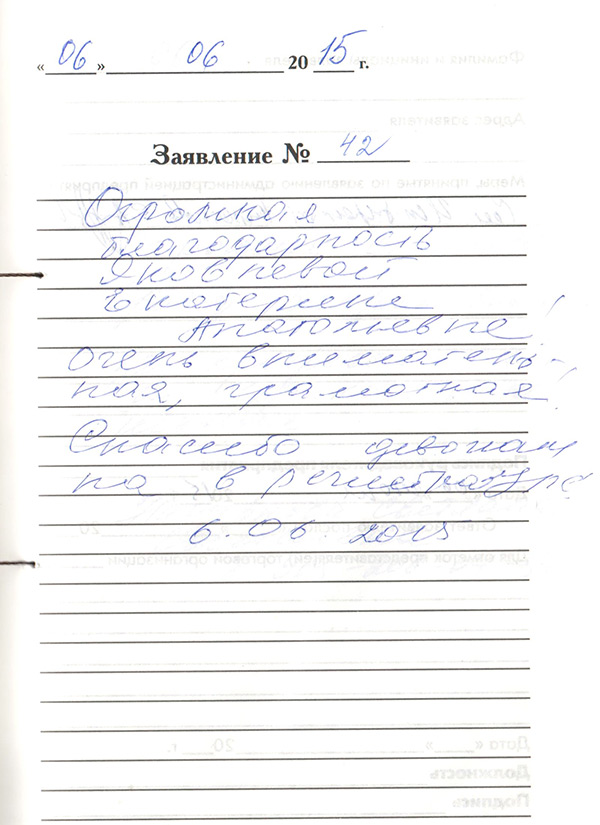 «06» 06 2015 г.
Заявление № 42
Огромная
благодарность
Яковлевой
Екатерине
Анатольевне!
Очень вниматель-
ная, грамотная!
Спасибо девочкам
в регистратуре
6.06.2015